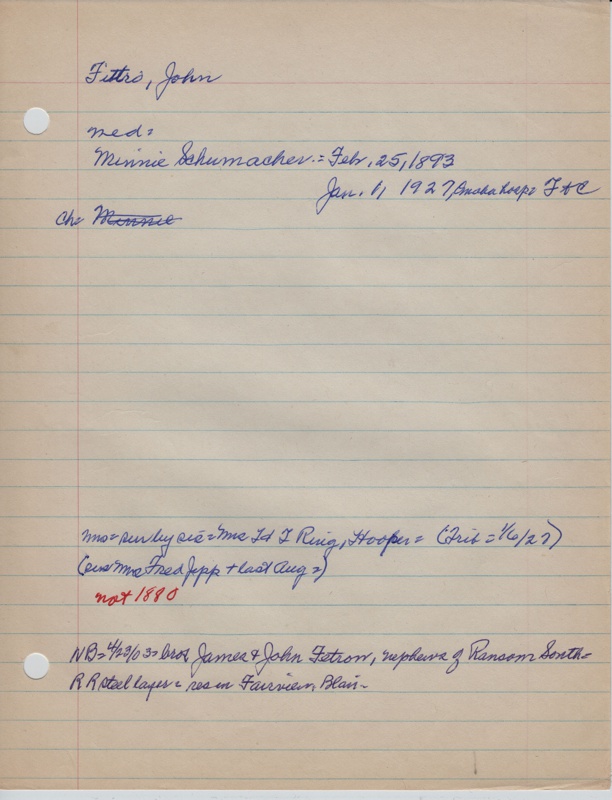 Fittro, John
med=
Minnie Schumacher = Feb. 25, 1893
Jan. 1, 1927, Omaha hosp = F + C
Ch= Minnie
Mrs = sur by sis = Mrs I Ring, Hooper = (Trib = 1/6/27)
(sis Mrs Fred Jipp + last Aug =)
not 1880
NB = 4/23/03 = bros James & John Fetrow, nephews of Ransom South =
RR steel layer = res in Fairview, Blair -